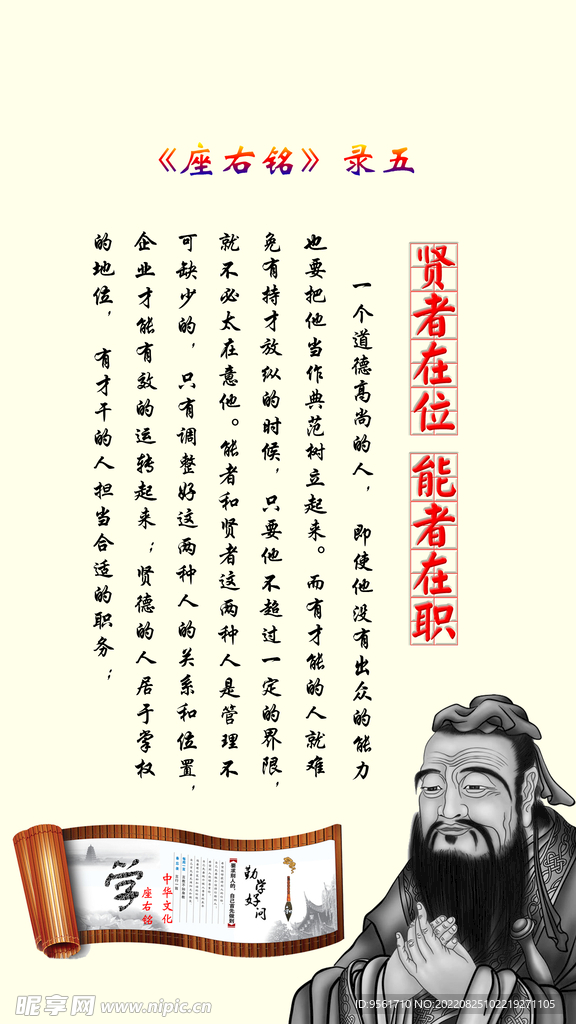 《座右铭》录五
贤者在位 能者在职
一个道德高尚的人，即使他没有出众的能力
也要把他当作典范树立起来。而有才能的人就难
免有持才放纵的时候，只要他不超过一定的界限，
就不必太在意他。能者和贤者这两种人是管理不
可缺少的，只有调整好这两种人的关系和位置，
企业才能有效的运转起来；贤德的人居于掌权
的地位，有才干的人担当合适的职务；
学
中华文化
座右铭
【要求别人的，自己首先做到】
勤学好问
昵享网 www.nipic.cn
ID:9561710 NO:20220825102219271105